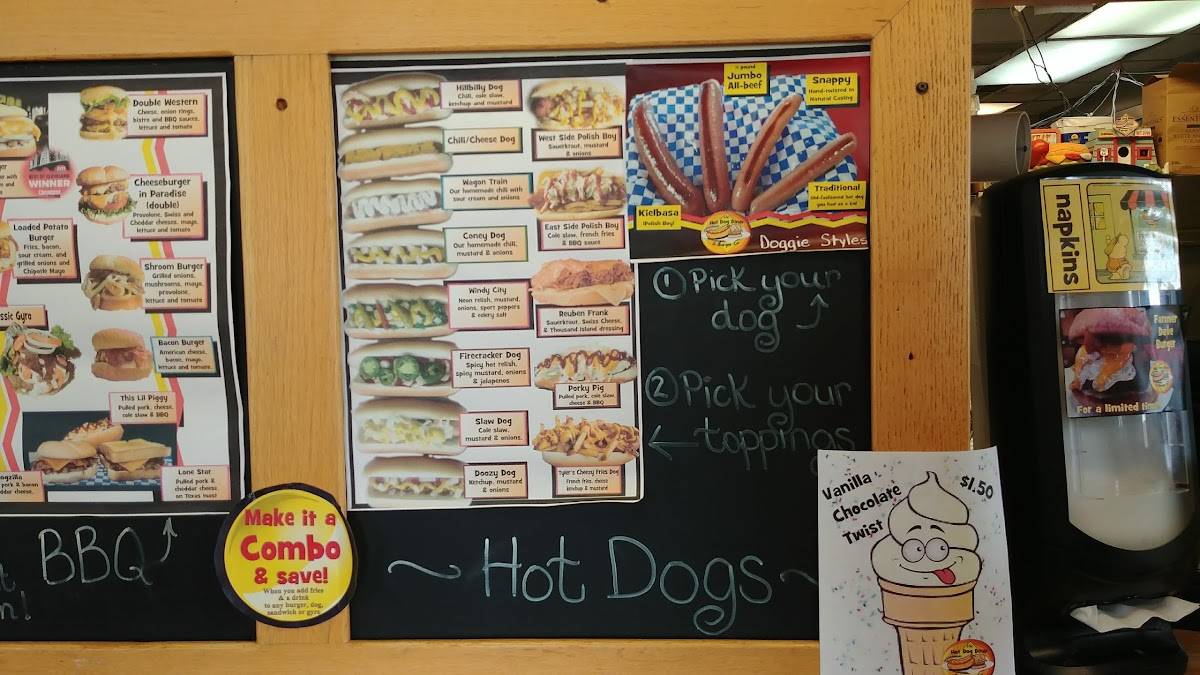 Double Western
Cheese, onion rings,
bistro and BBQ sauces,
lettuce and tomato
WINNER
Cheeseburger
in Paradise
(double)
Provolone, Swiss and
Cheddar cheeses, mayo,
lettuce and tomato
Loaded Potato
Burger
Fries, bacon,
sour cream, and
grilled onions and
Chipotle Mayo
Shroom Burger
Grilled onions,
mushrooms, mayo,
provolone,
lettuce and tomato
Gyro
Bacon Burger
American cheese,
bacon, mayo,
lettuce and tomato
This Lil Piggy
Pulled pork, cheese,
cole slaw & BBQ
pork & bacon
cheese.
Lone Star
Pulled pork &
cheddar cheese,
on Texas toast
BBQ
Make it a
Combo
& save!
When you add fries
& a drink
to any burger, dog,
sandwich or gyro
Hillbilly Dog
Chili, cole slaw,
ketchup and mustard
Chili/Cheese Dog
Wagon Train
Our homemade chili with
sour cream and onions
Coney Dog
Our homemade chili,
mustard & onions
Windy City
Neon relish, mustard,
onions, sport peppers
& celery salt
Firecracker Dog
Spicy hot relish,
spicy mustard, onions
& jalapenos
Slaw Dog
Cole slaw,
mustard & onions
Doozy Dog
Ketchup, mustard
& onions
West Side Polish Boy
Sauerkraut, mustard
& onions
East Side Polish Boy
Cole slaw, french fries
& BBQ sauce
Reuben Frank
Sauerkraut, Swiss Cheese
& Thousand Island dressing
Porky Pig
Pulled pork, cole slaw,
cheese & BBQ
Tyler's Cheezy Fries Dog
French fries, cheese
ketchup & mustard
Jumbo
All-beef
Snappy
Hand-twisted in
Natural Casing
Traditional
Old-fashioned hot dog
Kielbasa
(Polish Boy)
Doggie Styles
1 Pick your
dog
2 Pick your
toppings
~ Hot Dogs ~
Vanilla
Chocolate
Twist
$1.50
napkins
Farmer
Dale
Burger
For a limited